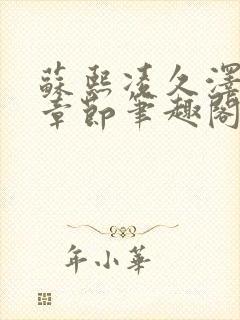 蘇熙凌久澤
章節筆趣閣
年小華